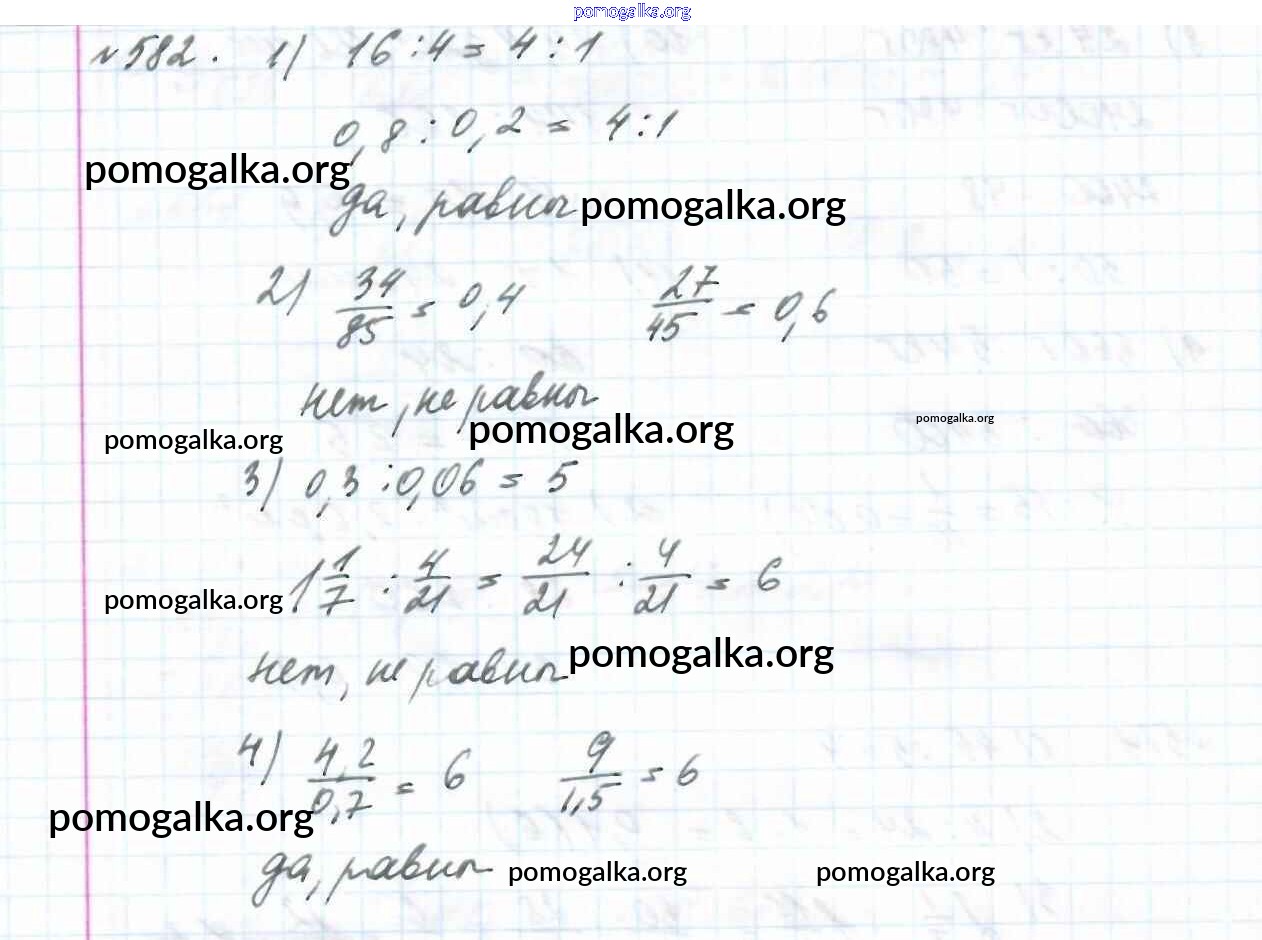 pomogalka.org
№582. 1) 16 : 4 = 4 : 1
0,8 : 0,2 = 4 : 1
pomogalka.org
да, равны pomogalka.org
2) 34/85 = 0,4 27/45 = 0,6
нет, не равны
pomogalka.org
pomogalka.org pomogalka.org
3) 0,3 : 0,06 = 5
1 1/7 : 4/21 = 24/21 : 4/21 = 6
pomogalka.org
нет, не равны pomogalka.org
4) 4,2/0,7 = 6 9/1,5 = 6
pomogalka.org
да, равны pomogalka.org pomogalka.org